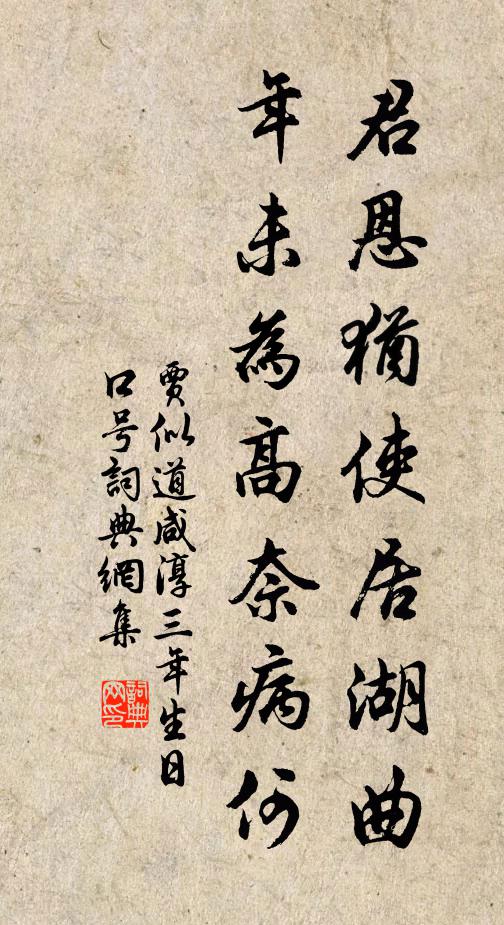 君恩猶使居湖曲
年未為高奈病何
賈似道咸淳三年生日
口号詞典網集
詞典网印